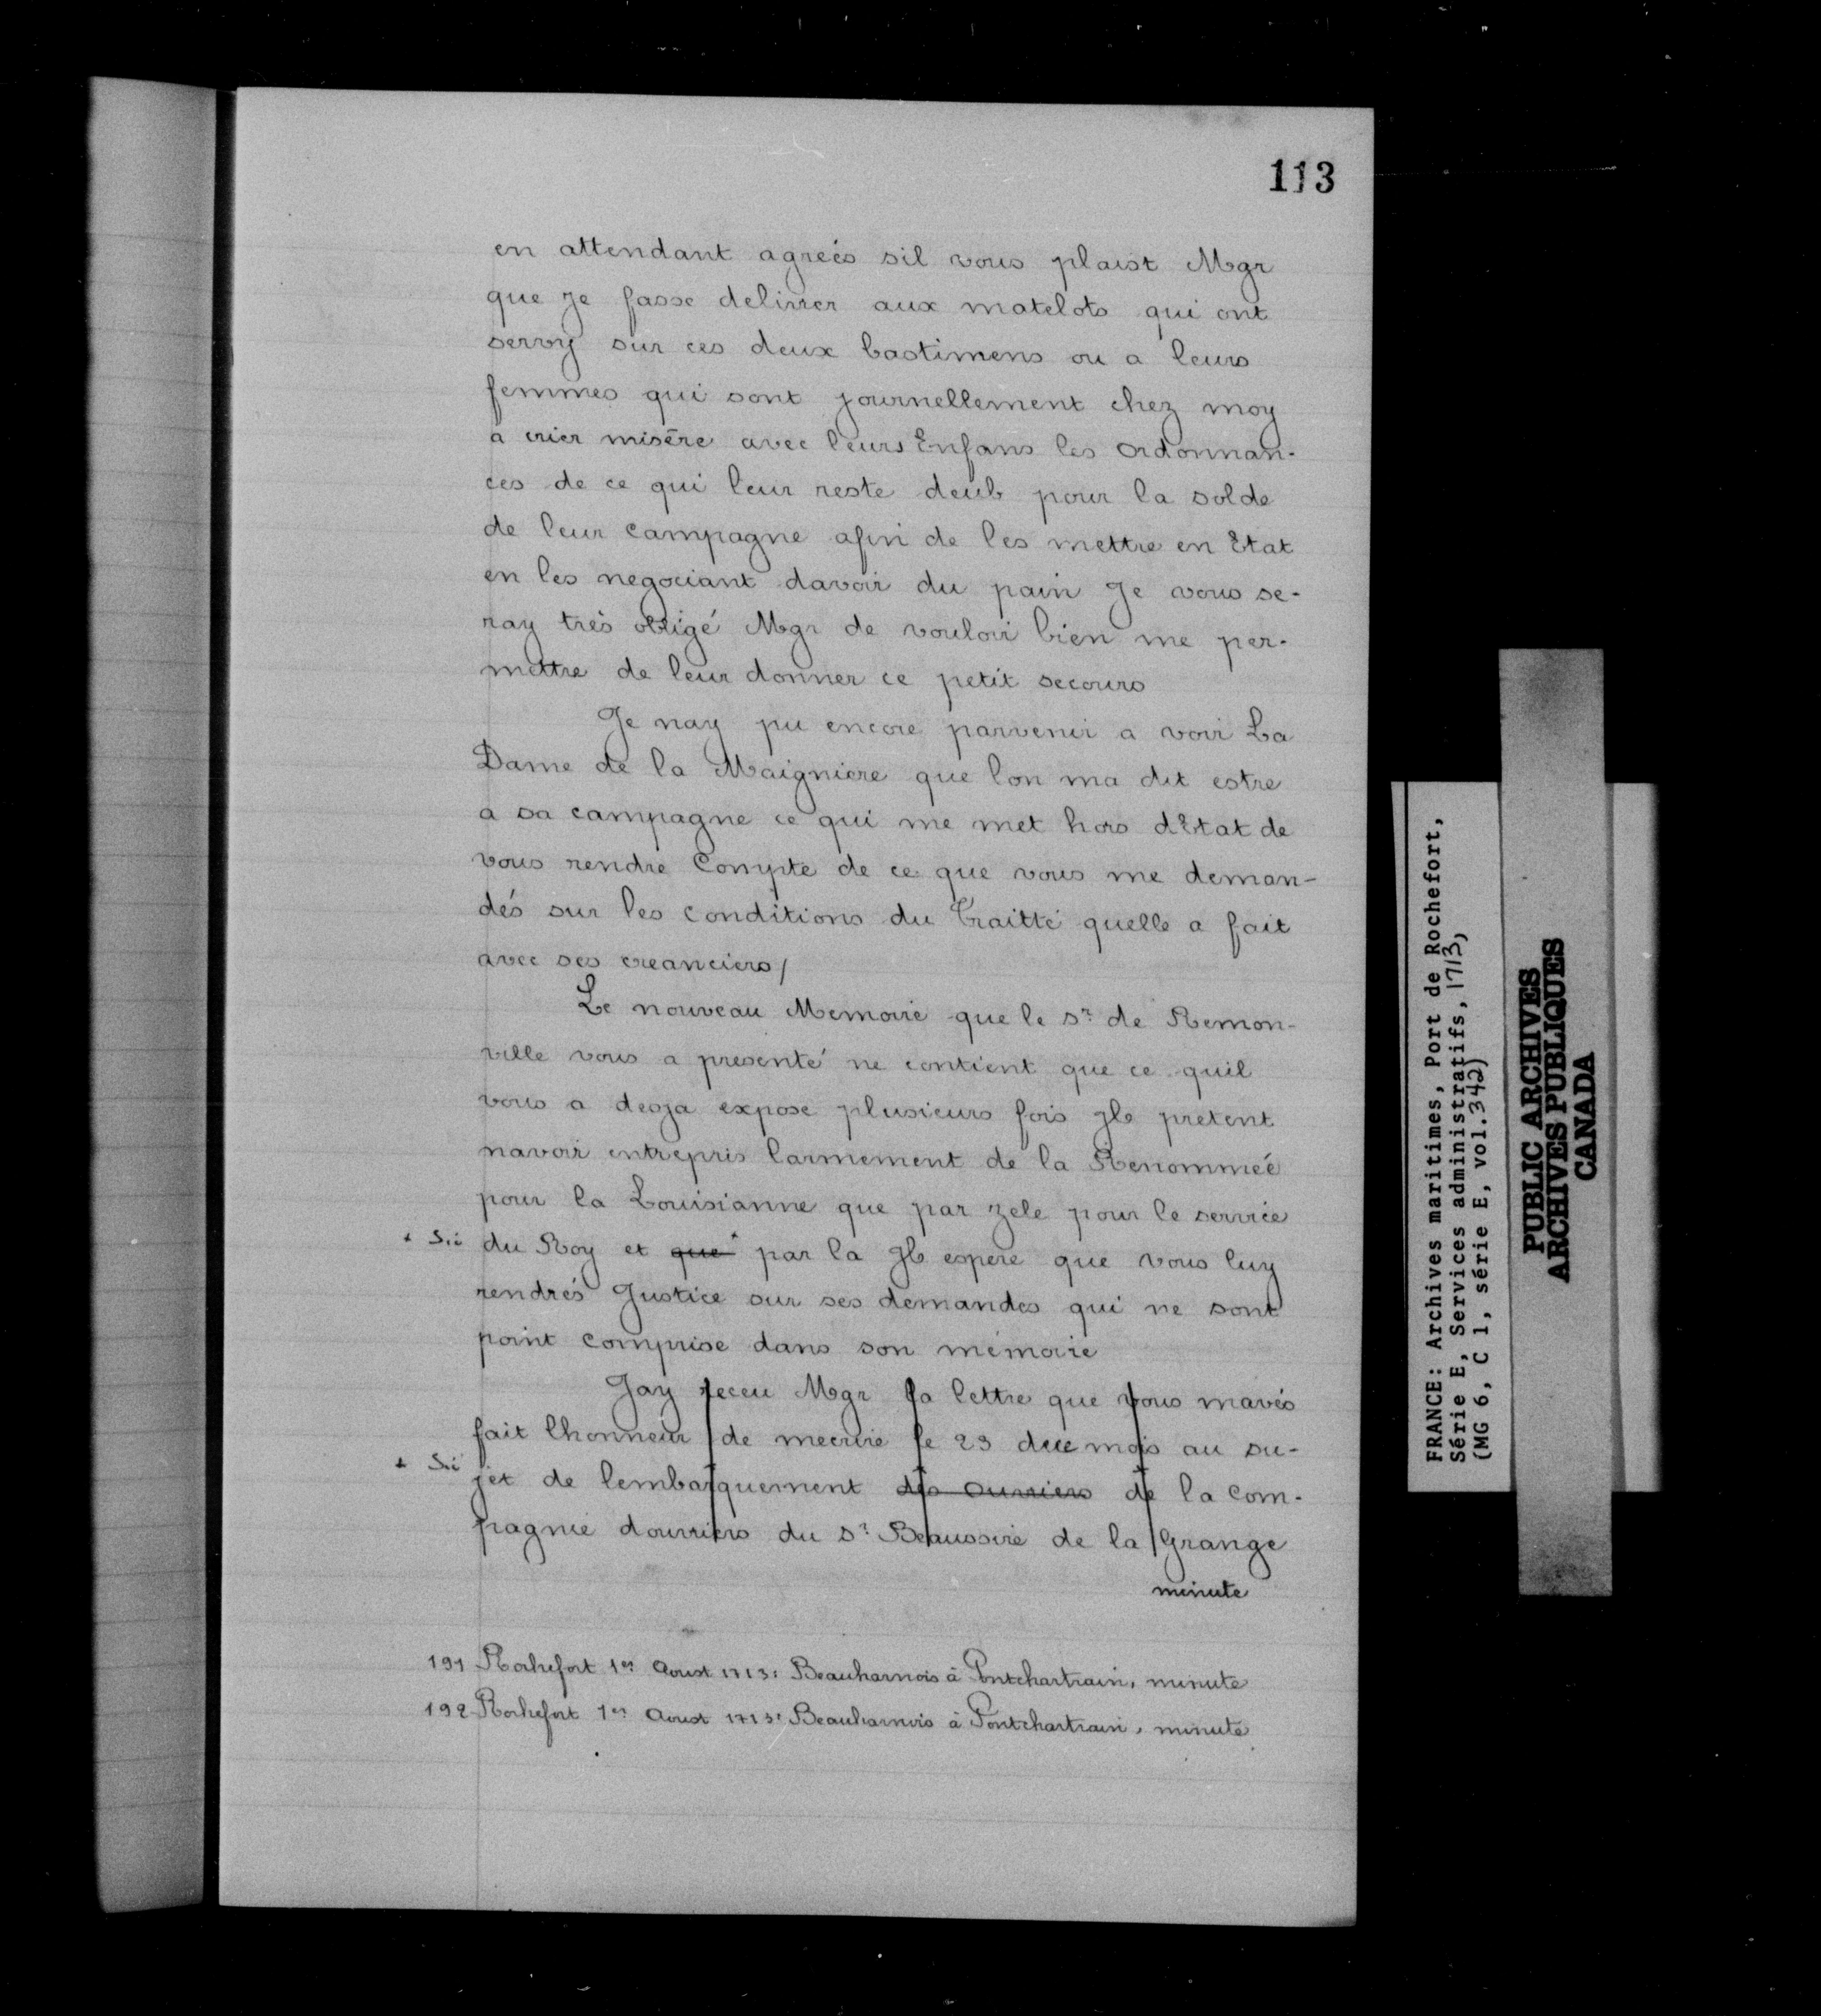 113
en attendant agreés sil vous plaist Mgr
que je fasse delivrer aux matelots qui ont
servy sur ces deux bastimens ou a leurs
femmes qui sont journellement chez moy
a crier misère avec leurs Enfans les ordonnan-
ces de ce qui leur reste deub pour la solde
de leur campagne afin de les mettre en Etat
en les negociant davoir du pain Je vous se-
ray très obligé Mgr de vouloir bien me per-
mettre de leur donner ce petit secours
Je nay pu encore parvenir a voir La
Dame de la Maigniere que lon ma dit estre
a sa campagne ce qui me met hors dEtat de
vous rendre Compte de ce que vous me deman-
dés sur les conditions du Traitté quelle a fait
avec ses creanciers/
Le nouveau Memoire que le Sr de Remon-
ville vous a presenté ne contient que ce quil
vous a desja expose plusieurs fois Jl pretent
navoir entrepris larmement de la Renommée
pour la Louisianne que par zele pour le service
+ Sic du Roy et que+ par la Jl espere que vous luy
rendrés Justice sur ses demandes qui ne sont
point comprise dans son mémoire
Jay receu Mgr la lettre que vous mavés
fait lhonneur de mecrire le 23 du mois au su-
+ Sic jet de lembarquement des ouvriers de la com-
pagnie douvriers du Sr Beaussire de la Grange
minute
191 Rochefort 1er Aoust 1713: Beauharnois à Pontchartrain, minute
192 Rochefort 1er Aoust 1713: Beauharnois à Pontchartrain, minute
FRANCE: Archives maritimes, Port de Rochefort,
Série E, Services administratifs, 1713,
(MG 6, C 1, série E, vol. 342)
PUBLIC ARCHIVES
ARCHIVES PUBLIQUES
CANADA